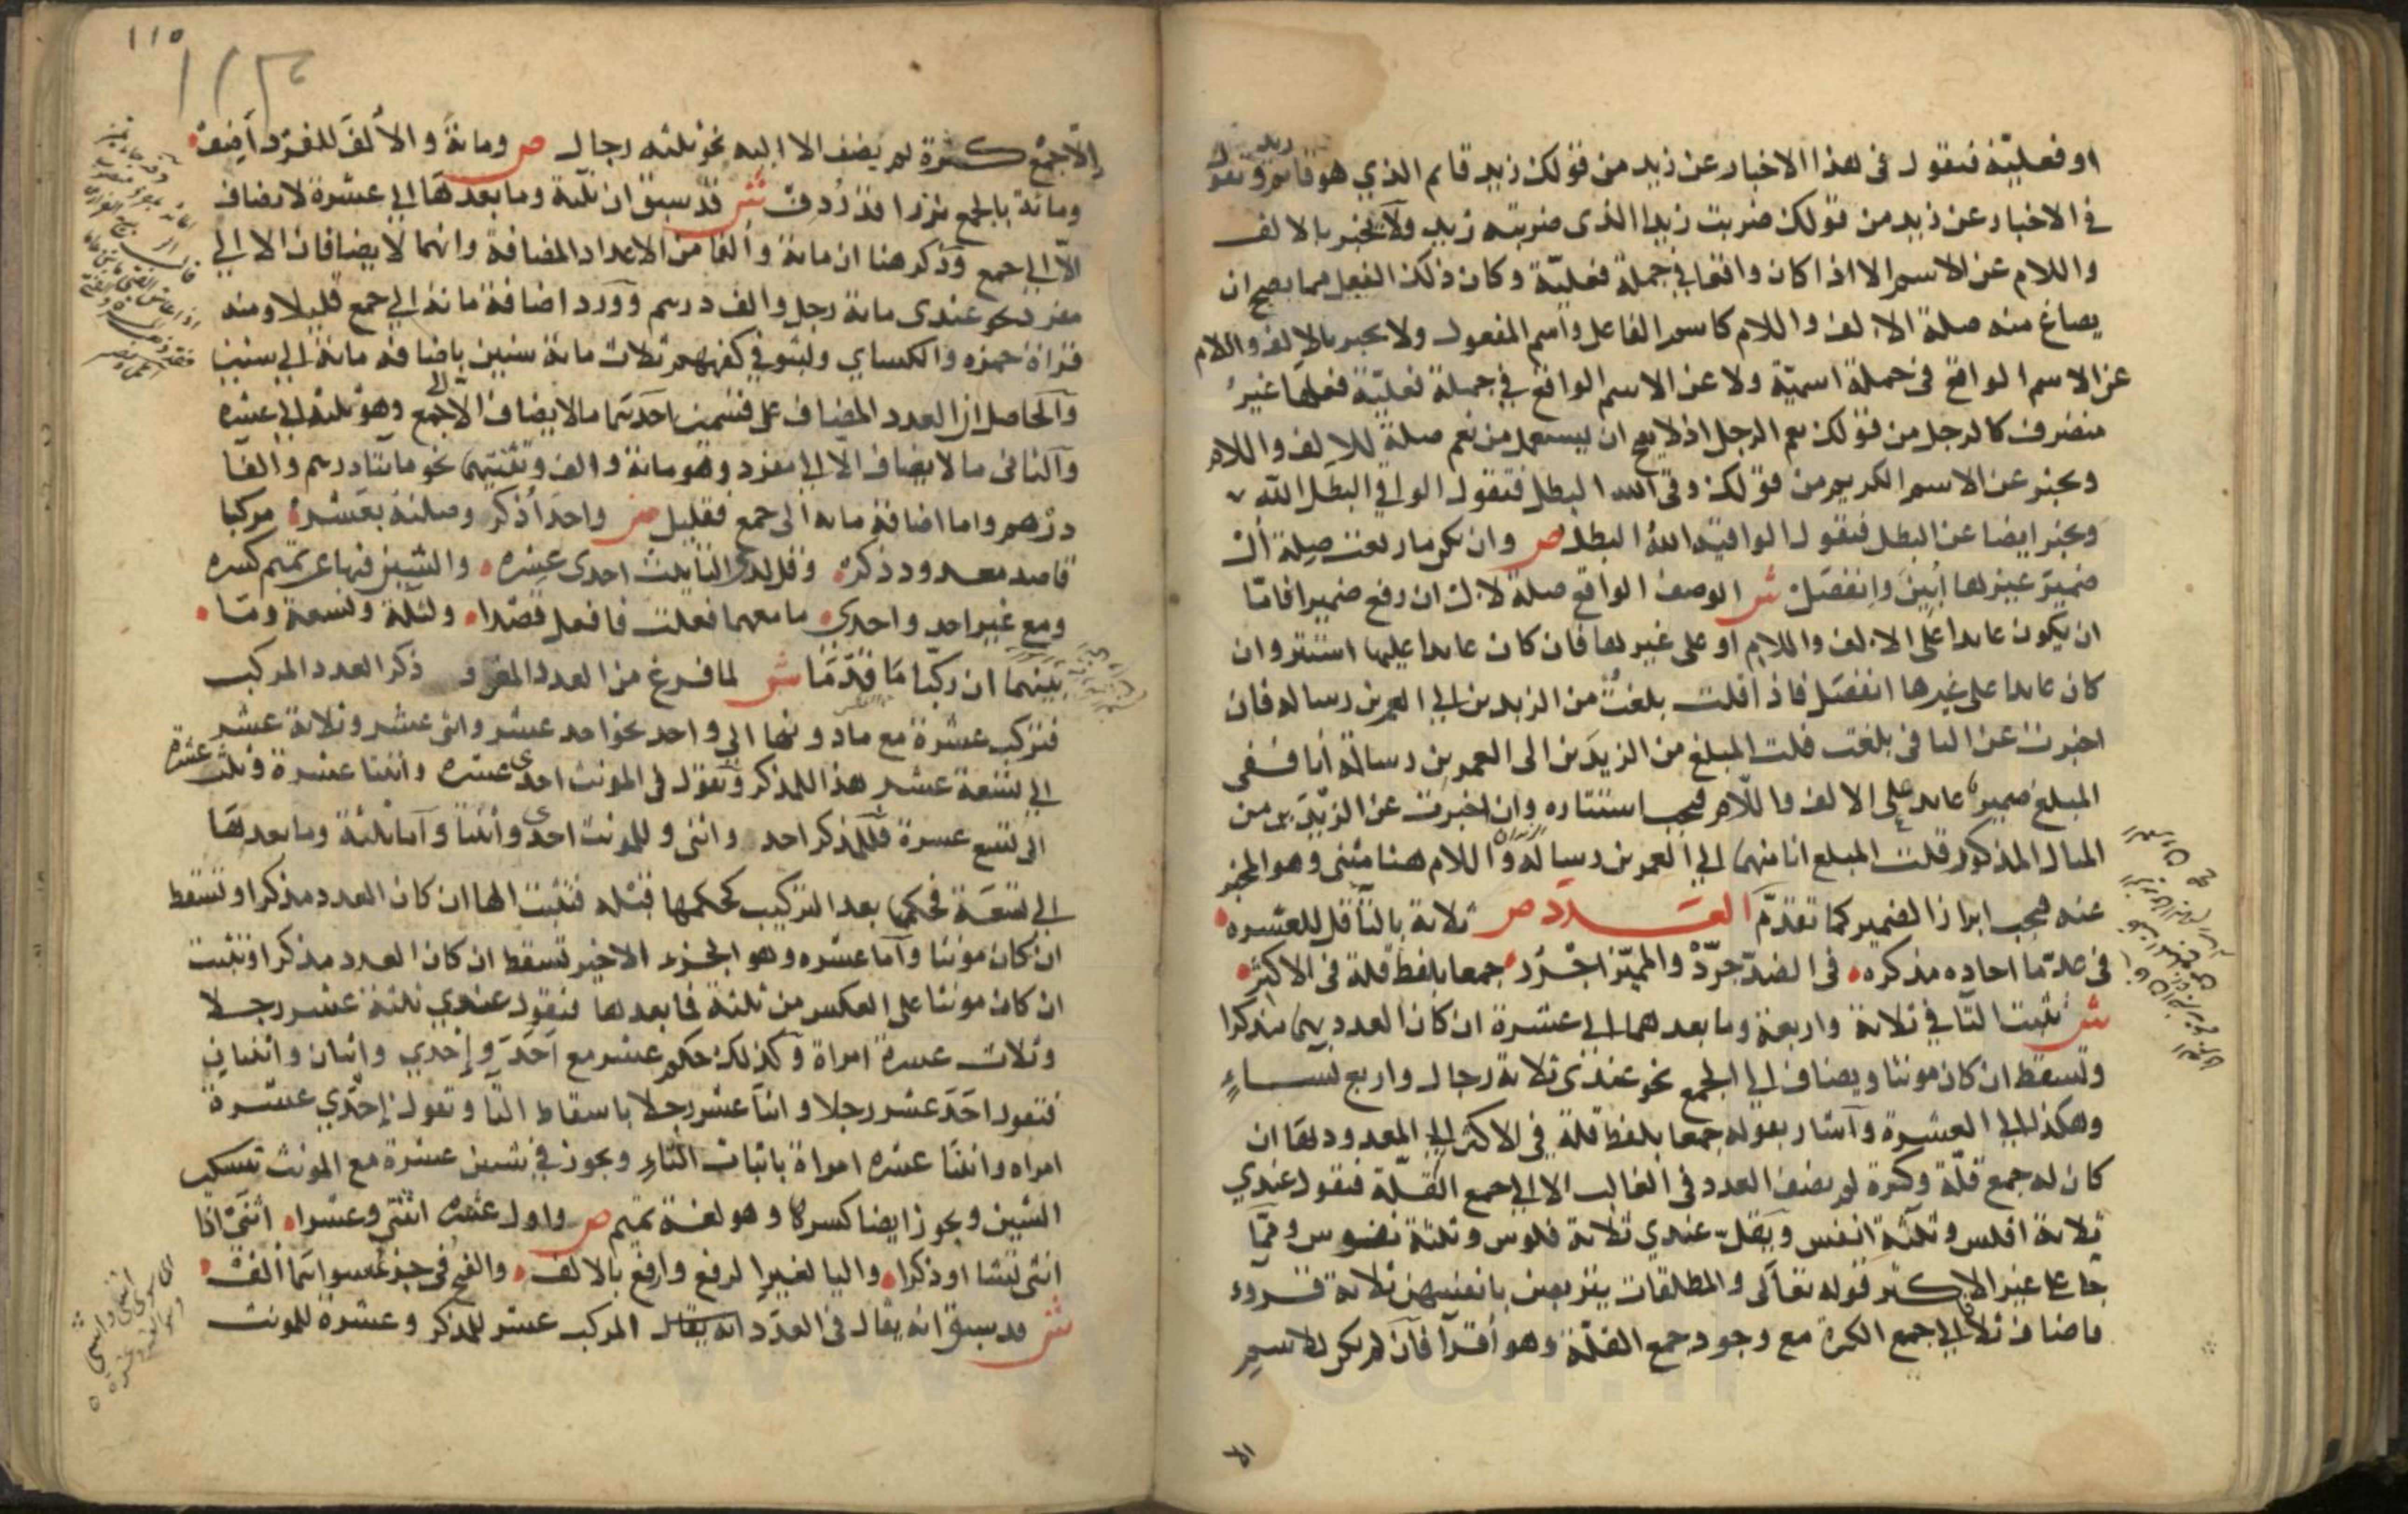 او فعليّة فتقول فى هذا الاخبار عن زيد من قولك زيد قايم الذي هو قايم زيد وتقول
فى الاخبار عن زيد من قولك ضربت زيدا الذى ضربته زيد ولا يخبر بالالف
واللام عن الاسم الا اذا كان واقعا في جملة فعليّة وكان ذلك الفعل مما يصح ان
يصاغ منه صلة الالف واللام كاسم الفاعل واسم المفعول ولا يخبر بالالف واللام
عن الاسم الواقع فى جملة اسميّة ولا عن الاسم الواقع في جملة فعليّة فعلها غير
متصرف كالرجل من قولك نعم الرجل اذ لا يصح ان يستعمل من نعم صلة للالف واللام
ويخبر عن الاسم الكريم من قولك وقى الله البطل فتقول الواقي البطل الله
ويخبر ايضا عن البطل فتقول الواقيه الله البطل ص وان يكن ما رفعت صلة أل
ضمير غيرها أبين وانفصل ش الوصف الواقع صلة لال ان رفع ضميرا فاما
ان يكون عايدا على الالف واللام او على غيرها فان كان عايدا عليها استتر وان
كان عايدا على غيرها انفصل فاذا قلت بلغت من الزيدين الى العمرين رسالة فان
اخبرت عن التا فى بلغت قلت المبلغ من الزيدين الى العمرين رسالة أنا ففى
المبلغ ضمير عايد على الالف واللام فيجب استتاره وان اخبرت عن الزيدين من
المثال المذكور قلت المبلغ انا منهما الى العمرين رسالة الزيدان واللام هنا مثنى وهو المخبر
عنه فيجب ابراز الضمير كما تقدّم العدد ص ثلاثة بالتاء قل للعشره
فى عدّ ما احاده مذكره فى الضد جرّد والمميّز اجرر جمعا بلفظ قلة فى الاكثر
ش تثبت التا في ثلاثة واربعة وما بعدهما الى عشرة ان كان العدد بهما مذكرا
وتسقط ان كان مونثا ويضاف الى الجمع نحو عندى ثلاثة رجال واربع نساء
وهكذا الى العشرة واشار بقوله جمعا بلفظ قلة فى الاكثر الى المعدود بها ان
كان له جمع قلّة وكثرة لم يضف العدد فى الغالب الا الى جمع القلّة فتقول عندي
ثلاثة افلس وثلثة انفس ويقلّ عندي ثلاثة فلوس وثلثة نفوس وممّا
جا على غير الاكثر قوله تعالى والمطلقات يتربصن بانفسهن ثلاثة قروء
فاضاف ثلاثة الى جمع الكثرة مع وجود جمع القلّة وهو أقرآ فان لم يكن للاسم
الا
١١٥
إلا جمع كثرة لم يضف الا اليه نحو ثلثه رجال ص ومائة والألف للفرد أضف
ومائة بالجمع نزرا قد ردف ش قد سبق ان ثلثة وما بعدها الى عشرة لا تضاف
الا الى جمع وذكر هنا ان مائة وألفا من الاعداد المضافة وانهما لا يضافان الا الى
مفرد نحو عندى مائة رجل والف درهم وورد اضافة مائة الى جمع قليلا ومنه
قراة حمزه والكساي ولبثو في كهفهم ثلاث مائة سنين باضافة مائة الى سنين
والحاصل ان العدد المضاف على قسمين احدهما ما لا يضاف الا الى جمع وهو ثلثة الى عشره
والثانى ما لا يضاف الا الى مفرد وهو مائة والف وتثنيتهما نحو مائتا درهم والفا
درهم واما اضافة مائة الى جمع فقليل ص واحد أذكر وصلنه بعشره مركبا
قاصد معدود ذكر وقل لدى التانيث احدى عشره والشين فيها عن تميم كسره
ومع غير احد واحدى ما معهما فعلت فافعل قصدا ولثلثة وتسعة وما
بينهما ان ركبا ما قدّما ش لما فرغ من العدد المفرد ذكر العدد المركب
فتركب عشرة مع ما دونها الى واحد نحو احد عشر واثنى عشر وثلاثة عشر
الى تسعة عشر هذا للمذكر وتقول فى المونث احدى عشره واثنتا عشرة وثلث عشرة
الى تسع عشرة فللمذكر احد واثنى وللمونث احدى واثنتا وأما ثلثة وما بعدها
الى تسعة فحكمها بعد التركيب كحكمها قبله فتثبت الها ان كان العدد مذكرا وتسقط
ان كان مونثا وأما عشره وهو الجزء الاخير تسقط ان كان العدد مذكرا وتثبت
ان كان مونثا على العكس من ثلثة فما بعدها فتقول عندي ثلثة عشر رجلا
وثلاث عشرة امراة وكذلك حكم عشر مع أحد وإحدي واثنان واثنتان
فتقول احد عشر رجلا واثنا عشر رجلا باسقاط التا وتقول إحدي عشرة
امراه واثنتا عشره امراة باثبات التاء ويجوز في شين عشرة مع المونث تسكين
الشين ويجوز ايضا كسرها وهو لغة تميم ص واول عشرة اثنتي وعشرا اثنى اذا
انثى تشا او ذكرا واليا لغير الرفع وارفع بالالف والفتح فى جزئي سواهما ألف
ش قد سبق انه يقال فى العدد انه يقال المركب عشر للمذكر وعشرة للمونث